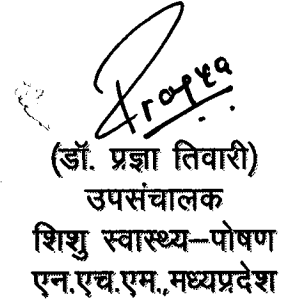 Pragya
(डॉ. प्रज्ञा तिवारी)
उपसंचालक
शिशु स्वास्थ्य–पोषण
एन.एच.एम.,मध्यप्रदेश